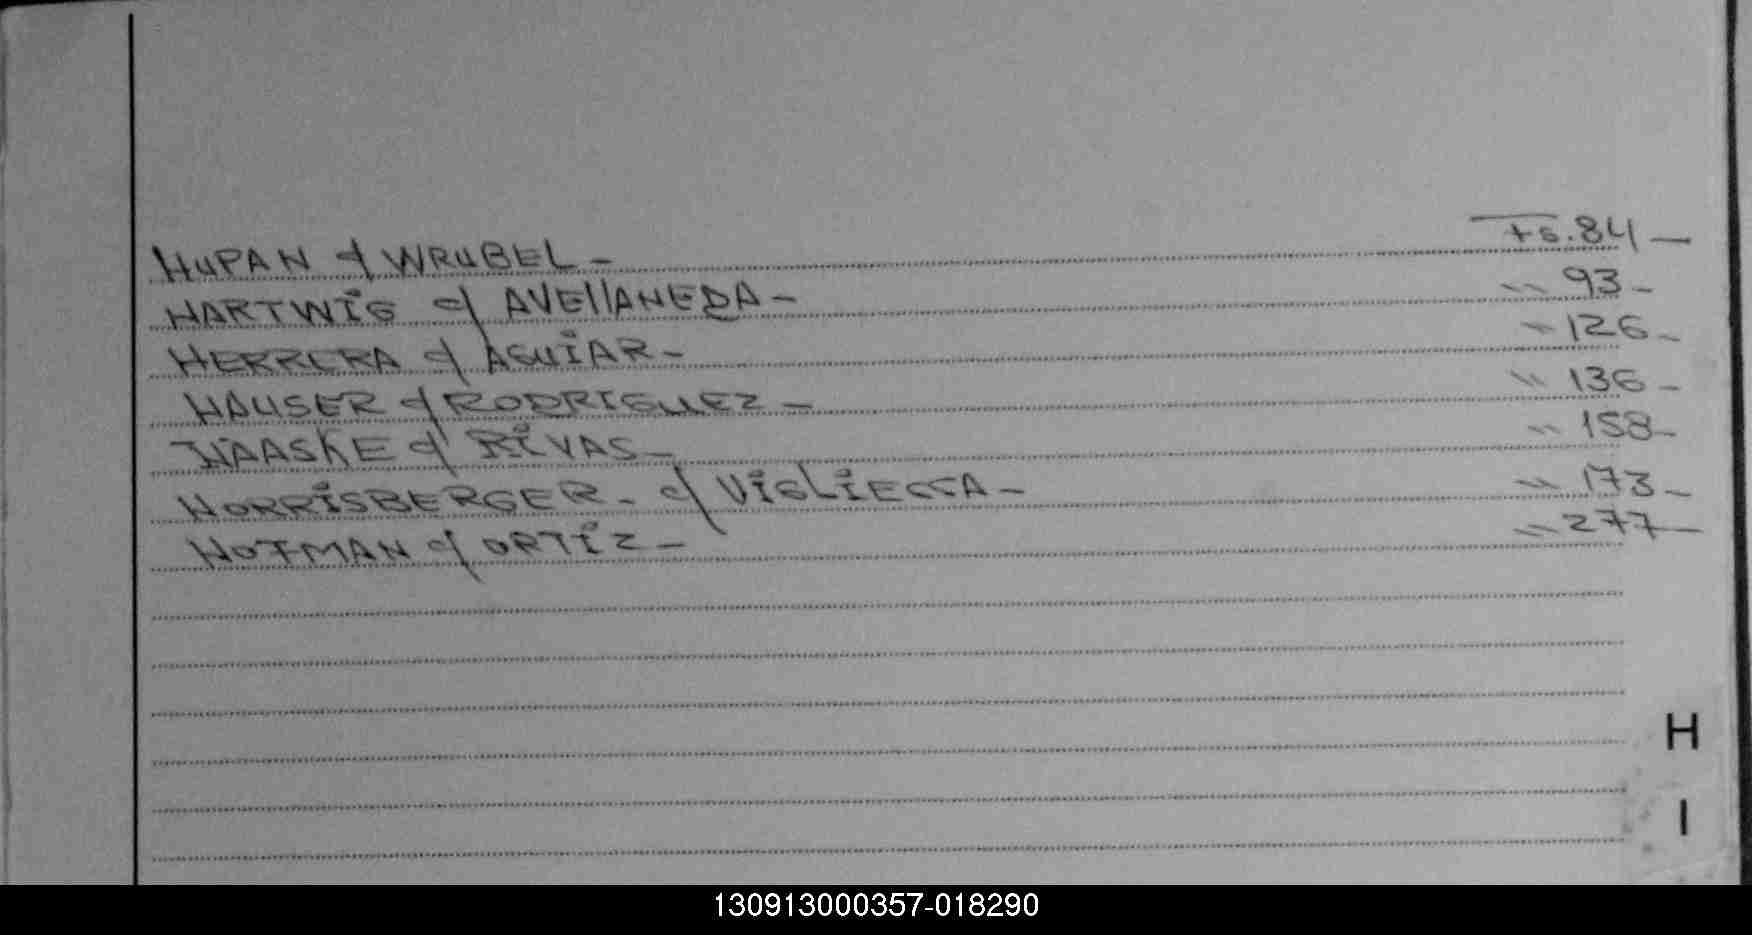 HUPAN c/ WRUBEL - Fs. 84 -
HARTWIG c/ AVEllANEDA - " 93 -
HERRERA c/ AGUIAR - " 126 -
HAUSER c/ RODRIGUEZ - " 136 -
HAASKE c/ RIVAS - " 158 -
HORRISBERGER - c/ VIGLIECCA - " 173 -
HOFMAN c/ ORTIZ - " 277 -
H
I
130913000357-018290